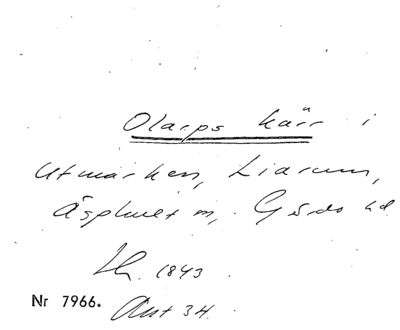 Olarps kärr i
Utmarken, Liarum,
Äsphult sn, Gärds hd
1843.
Nr 7966. Akt 34.